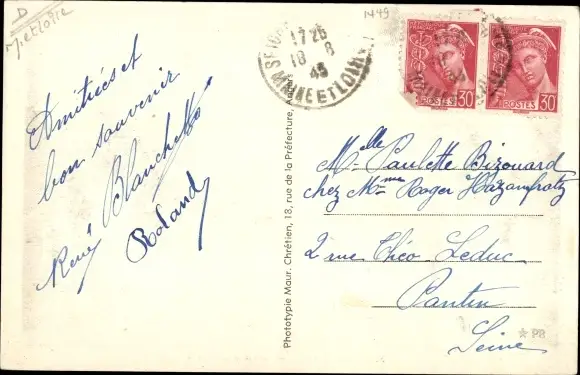 D
M. et Loire
1449
1726
18 - 8
45
MAINE ET LOIRE
POSTES 30
POSTES 30
Amitiés et
bon souvenir
René Blanchet
Roland
Phototypie Maur. Chrétien, 13, rue de la Préfecture, Angers
Melle Paulette Bizouard
chez Mme Roger Hazamfratz
2 rue Théo Leduc
Pantin
Seine
* PB